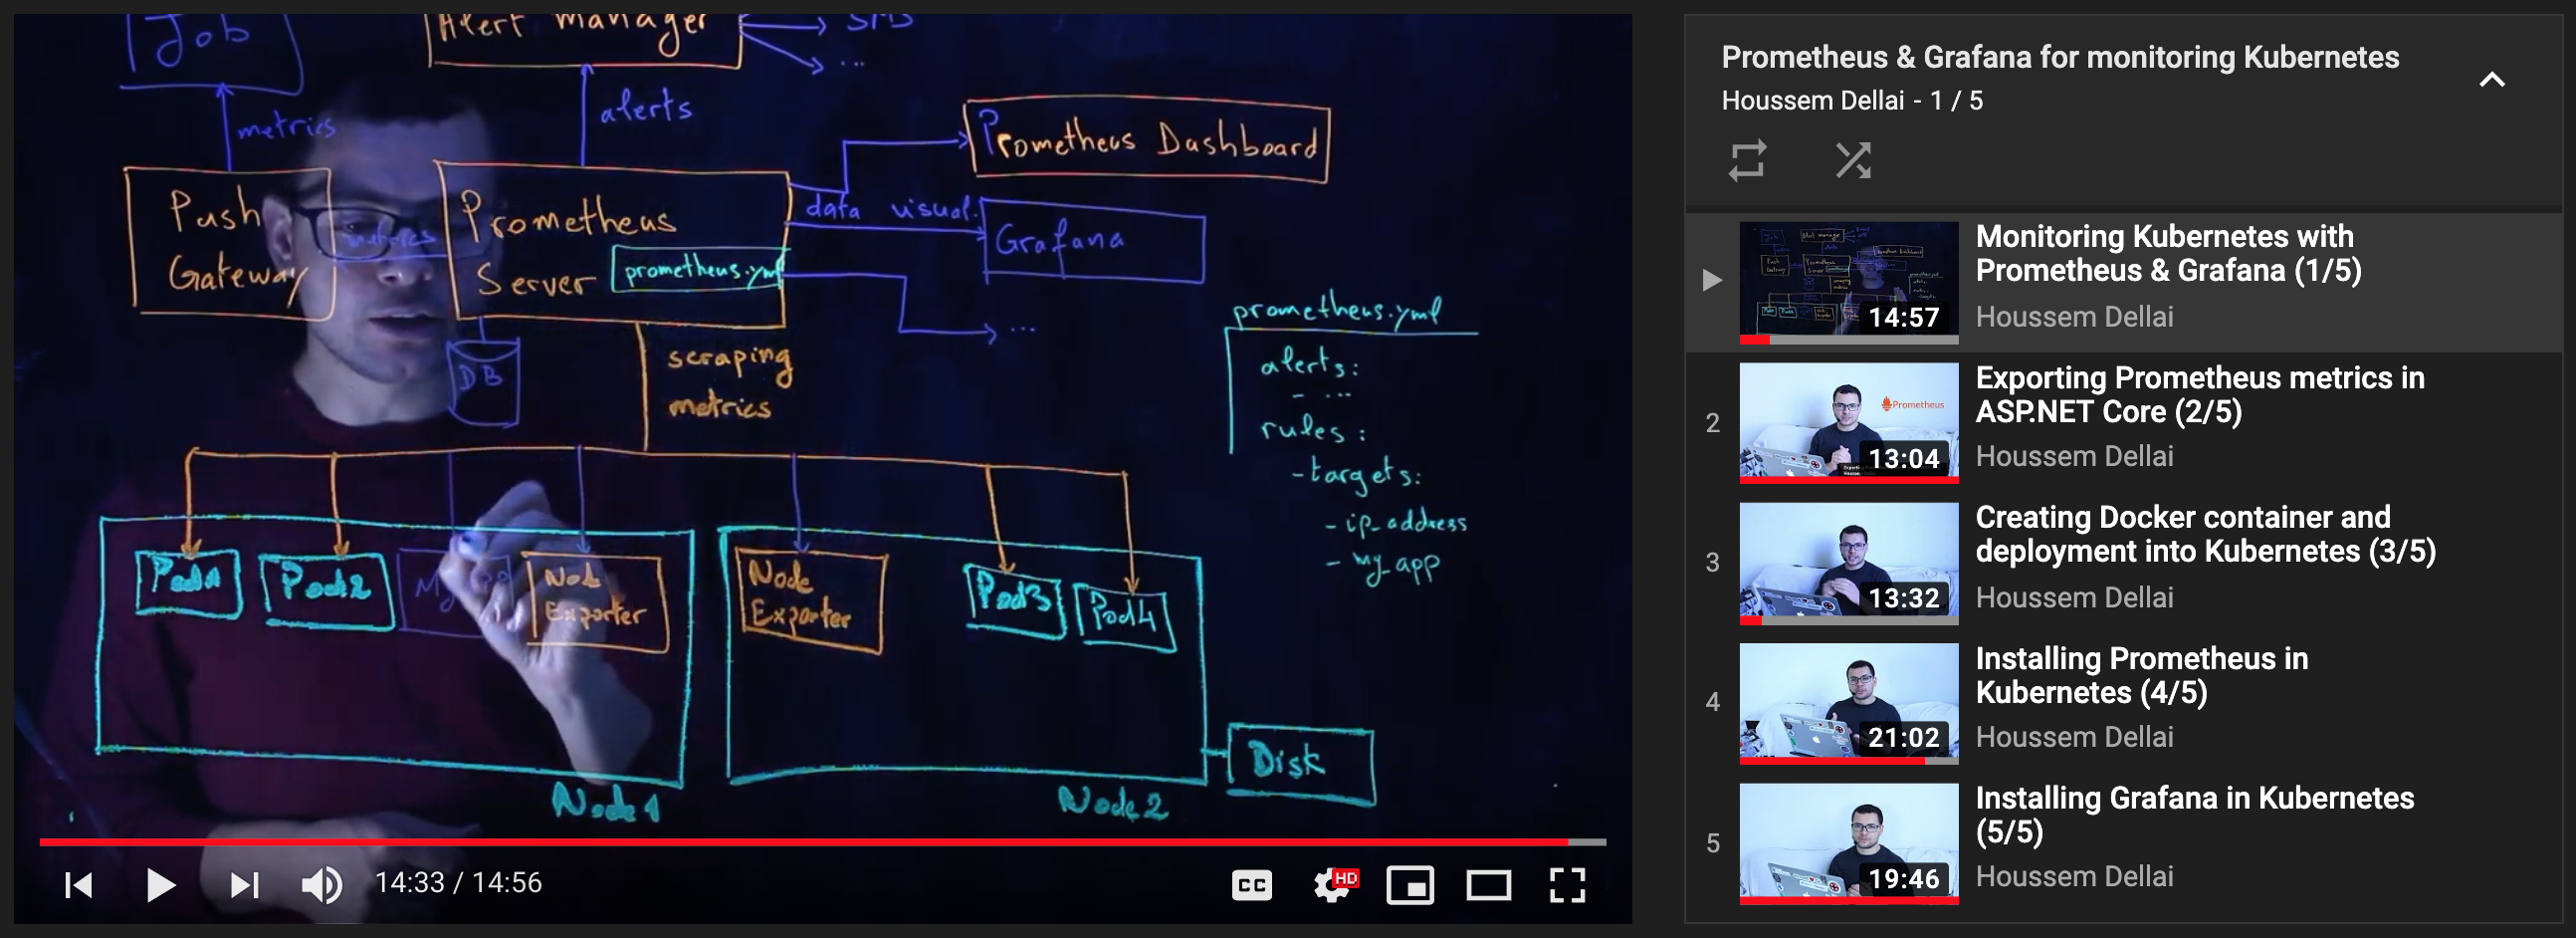 Job
Alert Manager
SMS
...
metrics
alerts
Prometheus Dashboard
Push
Gateway
metrics
Prometheus
Server
prometheus.yml
data visual.
Grafana
...
DB
scraping
metrics
prometheus.yml
alerts:
- ...
rules:
- targets:
- ip_address
- my_app
Pod1
Pod2
Node
Exporter
Node
Exporter
Pod3
Pod4
Disk
Node1
Node2
14:33 / 14:56
CC
HD
Prometheus & Grafana for monitoring Kubernetes
Houssem Dellai - 1 / 5
Monitoring Kubernetes with
Prometheus & Grafana (1/5)
Houssem Dellai
14:57
2
Exporting Prometheus metrics in
ASP.NET Core (2/5)
Houssem Dellai
Prometheus
13:04
3
Creating Docker container and
deployment into Kubernetes (3/5)
Houssem Dellai
13:32
4
Installing Prometheus in
Kubernetes (4/5)
Houssem Dellai
21:02
5
Installing Grafana in Kubernetes
(5/5)
Houssem Dellai
19:46